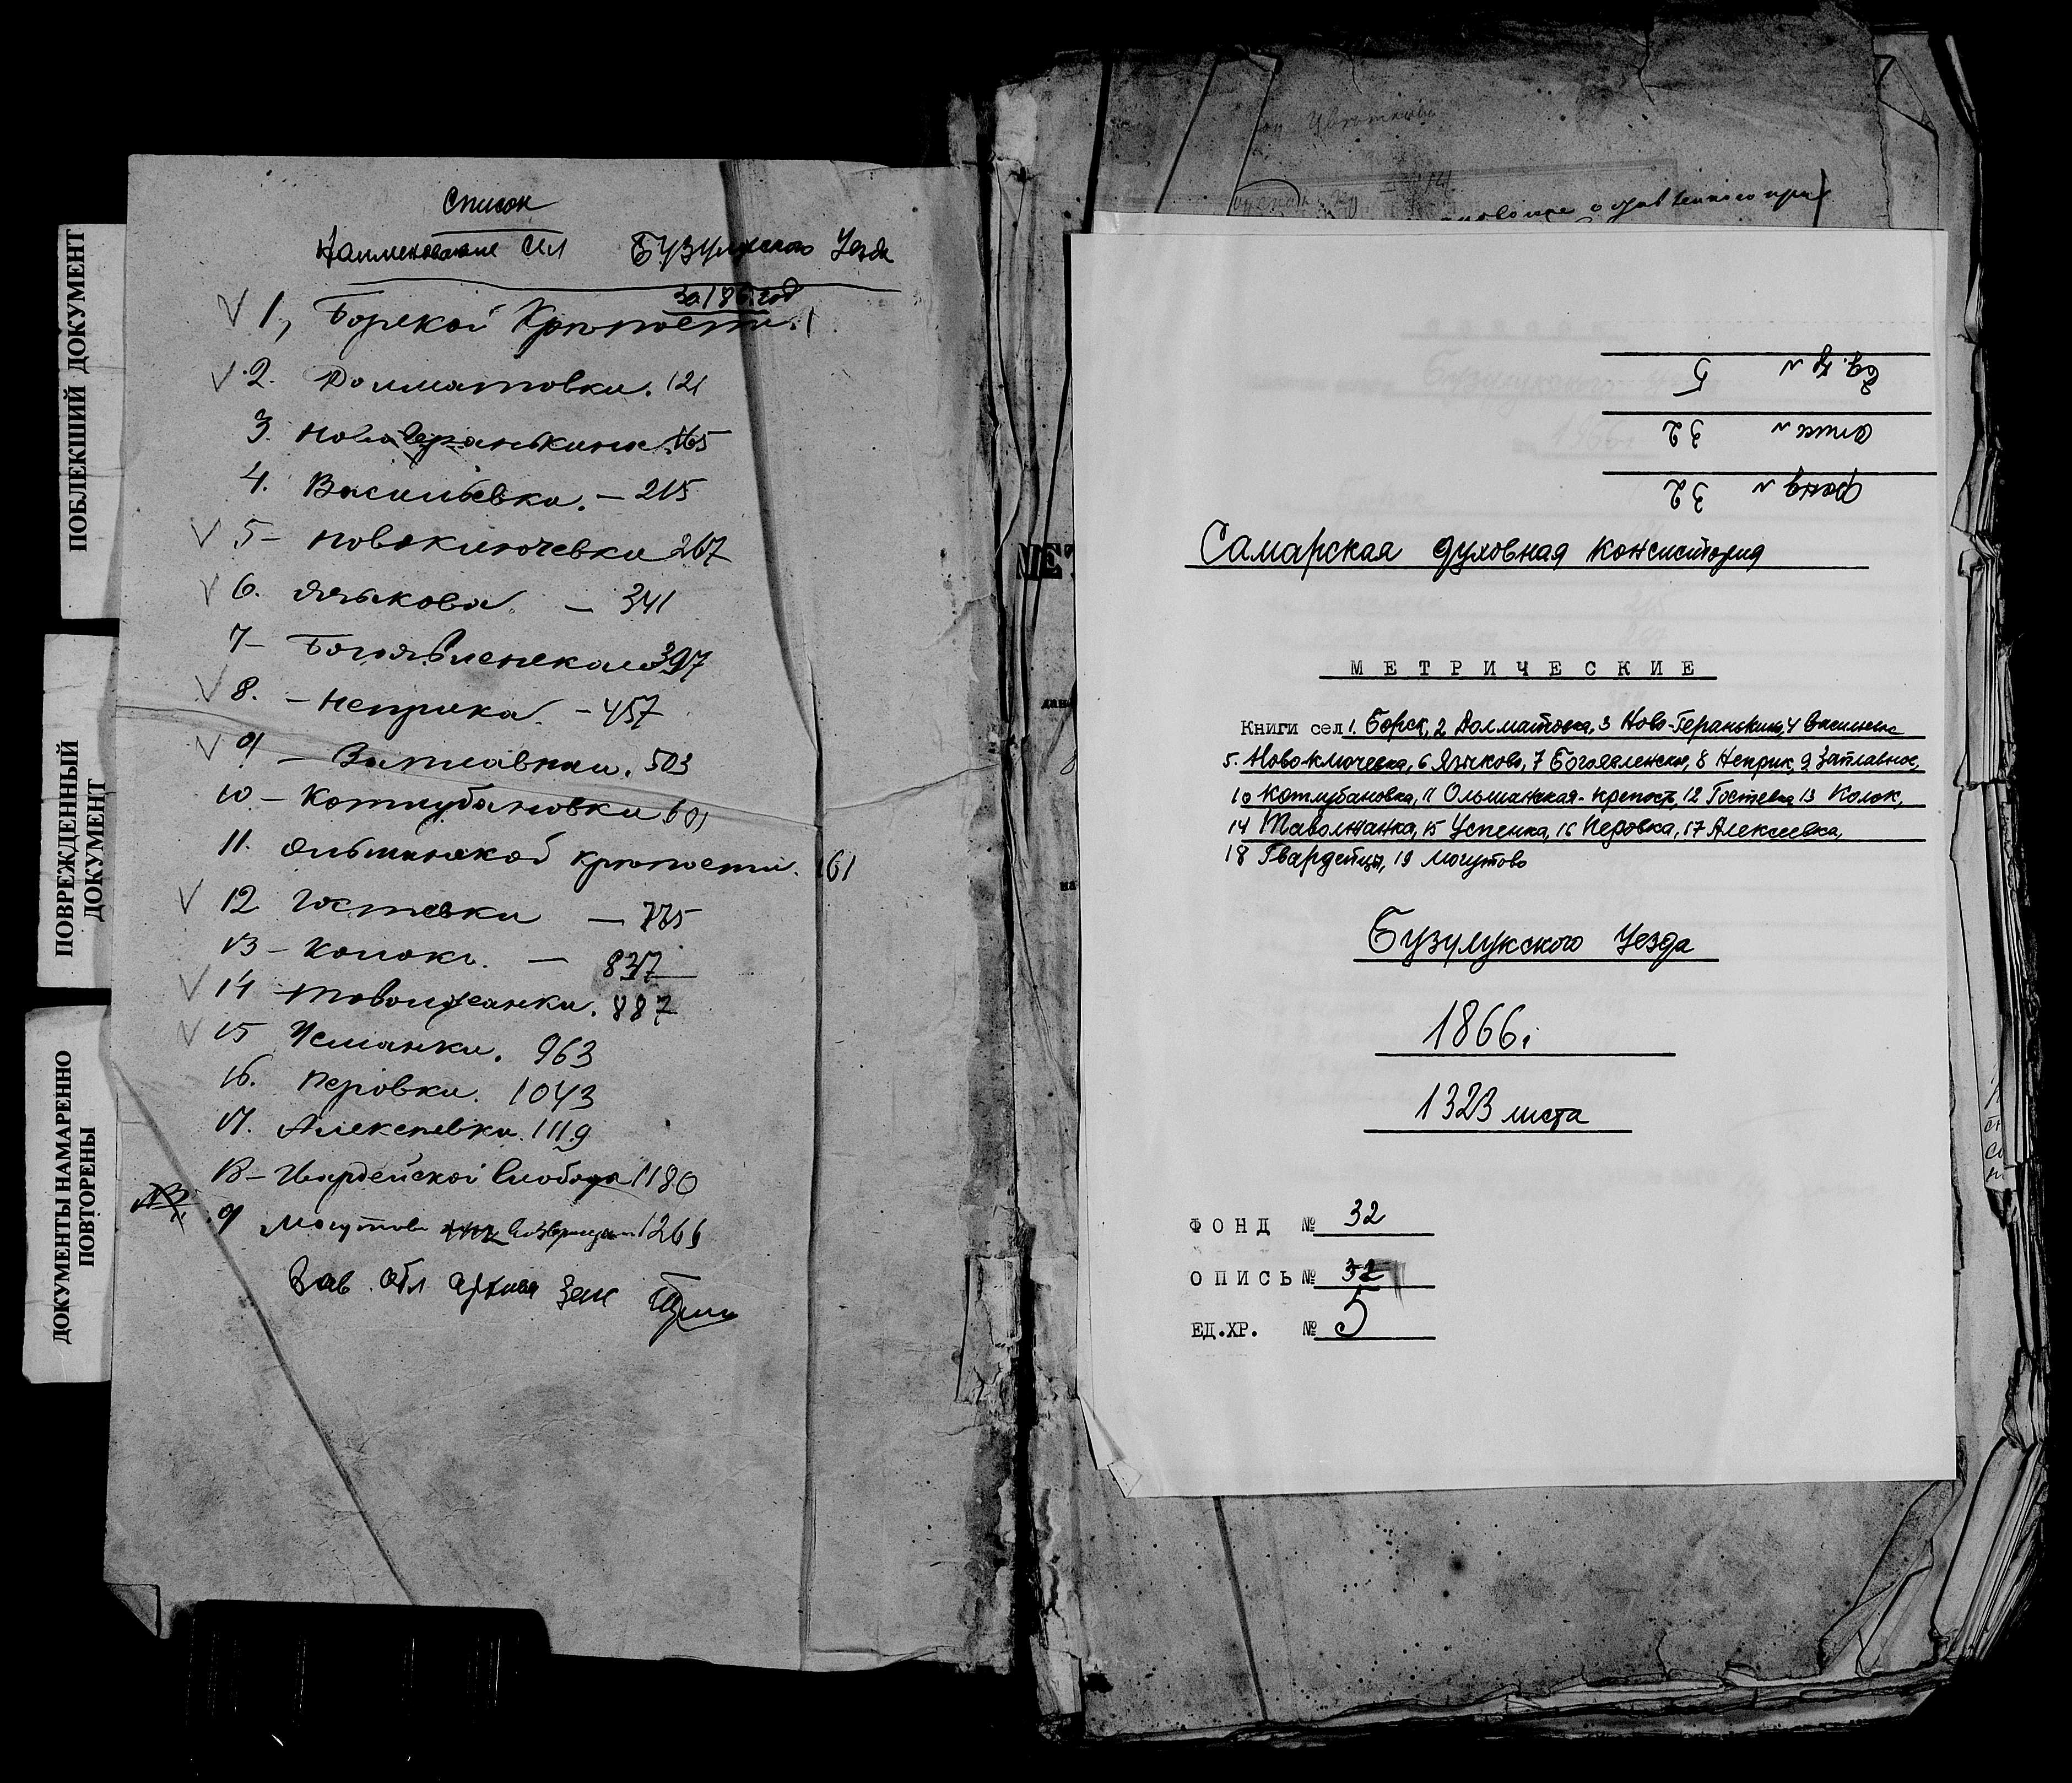 ПОБЛЕКШИЙ ДОКУМЕНТ
ПОВРЕЖДЕННЫЙ
ДОКУМЕНТ
ДОКУМЕНТЫ НАМАРЕННО
ПОВТОРЕНЫ
Список
Наименование сел Бузулукского Уезда
за 186 год
1, Борской Крѣпости. 1
2. Долматовки. 121
3. Ново Геранькина. 165
4. Васильевки. – 215
5 – Новоключевки 267
6. Язykова. – 341
7 – Богоявленскаго 397
8. – Неприка. – 457
9 – Заплавнаи. 503
10 – Котлубановки 601
11. Ольшанской крѣпости. 161
12 Гостевки – 775
13 – Колокъ. – 837
14 Товолжанки. 887
15 Успанки. 963
16. Перовки. 1043
17. Алексѣевки. 1119
18 – Гвардейской Слобода 1180
9 Могутова 1266
Зав. обл архива
МЕ
Ед. хр № 5
опись № 32
фонд № 32
Самарская духовная консистория
МЕТРИЧЕСКИЕ
Книги сел 1. Борск, 2 Долматовка, 3 Ново-Геранькино, 4 Васильевка
5. Ново-Ключевка, 6 Язykово, 7 Богоявленское, 8 Неприк, 9 Заплавное,
10 Котлубановка, 11 Ольшанская-крепость, 12 Гостевка 13 Колок,
14 Таволжанка, 15 Успенка, 16 Перовка, 17 Алексеевка,
18 Гвардейцы, 19 Могутово
Бузулукского Уезда
1866г
1323 листа
ФОНД № 32
ОПИСЬ № 32
ЕД.ХР. № 5